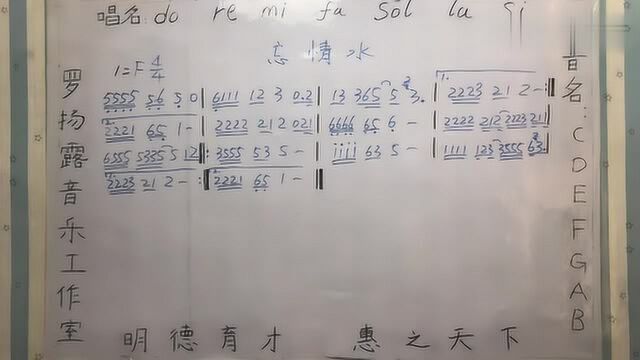 唱名: do re mi fa sol la si
忘情水
1=F 4/4
5555 56 5 0 | 6111 12 3 0.2 | 13 365 5 3. | 1. 2223 21 2 - :‖
2221 65 1 - | 2222 212 021 | 6666 65 6 - | 2222 212 2223 211 |
6555 5335 5 12 ‖: 3555 53 5 - | iiii 63 5 - | 1111 123 3555 63 |
2223 21 2 - :‖ 2221 65 1 - ‖
罗扬露音乐工作室
音名: C D E F G A B
明德育才 惠之天下